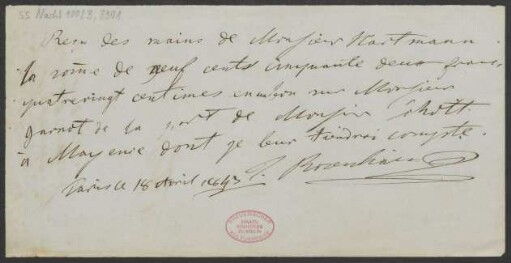 55 Nachl 100/B,
Reçu des mains de Monsieur Hartmann
la somme de neuf cents cinquante deux francs
quatrevingt centimes environ sur Monsieur
garnot de la part de Monsieur Schott
à Mayence dont je leur tiendrai compte.
Paris le 18 Avril J. Rosenhain